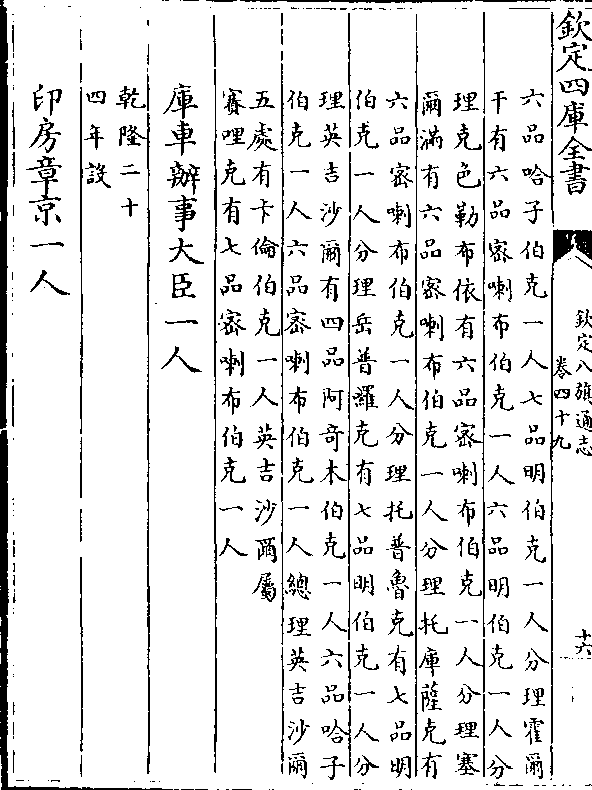 欽定四庫全書
欽定八旗通志
卷四十九
十六
六品哈子伯克一人七品明伯克一人分理霍爾
干有六品密喇布伯克一人六品明伯克一人分
理克色勒布依有六品密喇布伯克一人分理塞
爾滿有六品密喇布伯克一人分理托庫薩克有
六品密喇布伯克一人分理托普魯克有七品明
伯克一人分理岳普羅克有七品明伯克一人分
理英吉沙爾有四品阿竒木伯克一人六品哈子
伯克一人六品密喇布伯克一人總理英吉沙爾
五處有卡倫伯克一人英吉沙爾屬
賽哩克有七品密喇布伯克一人
庫車辦事大臣一人
乾隆二十
四年設
印房章京一人